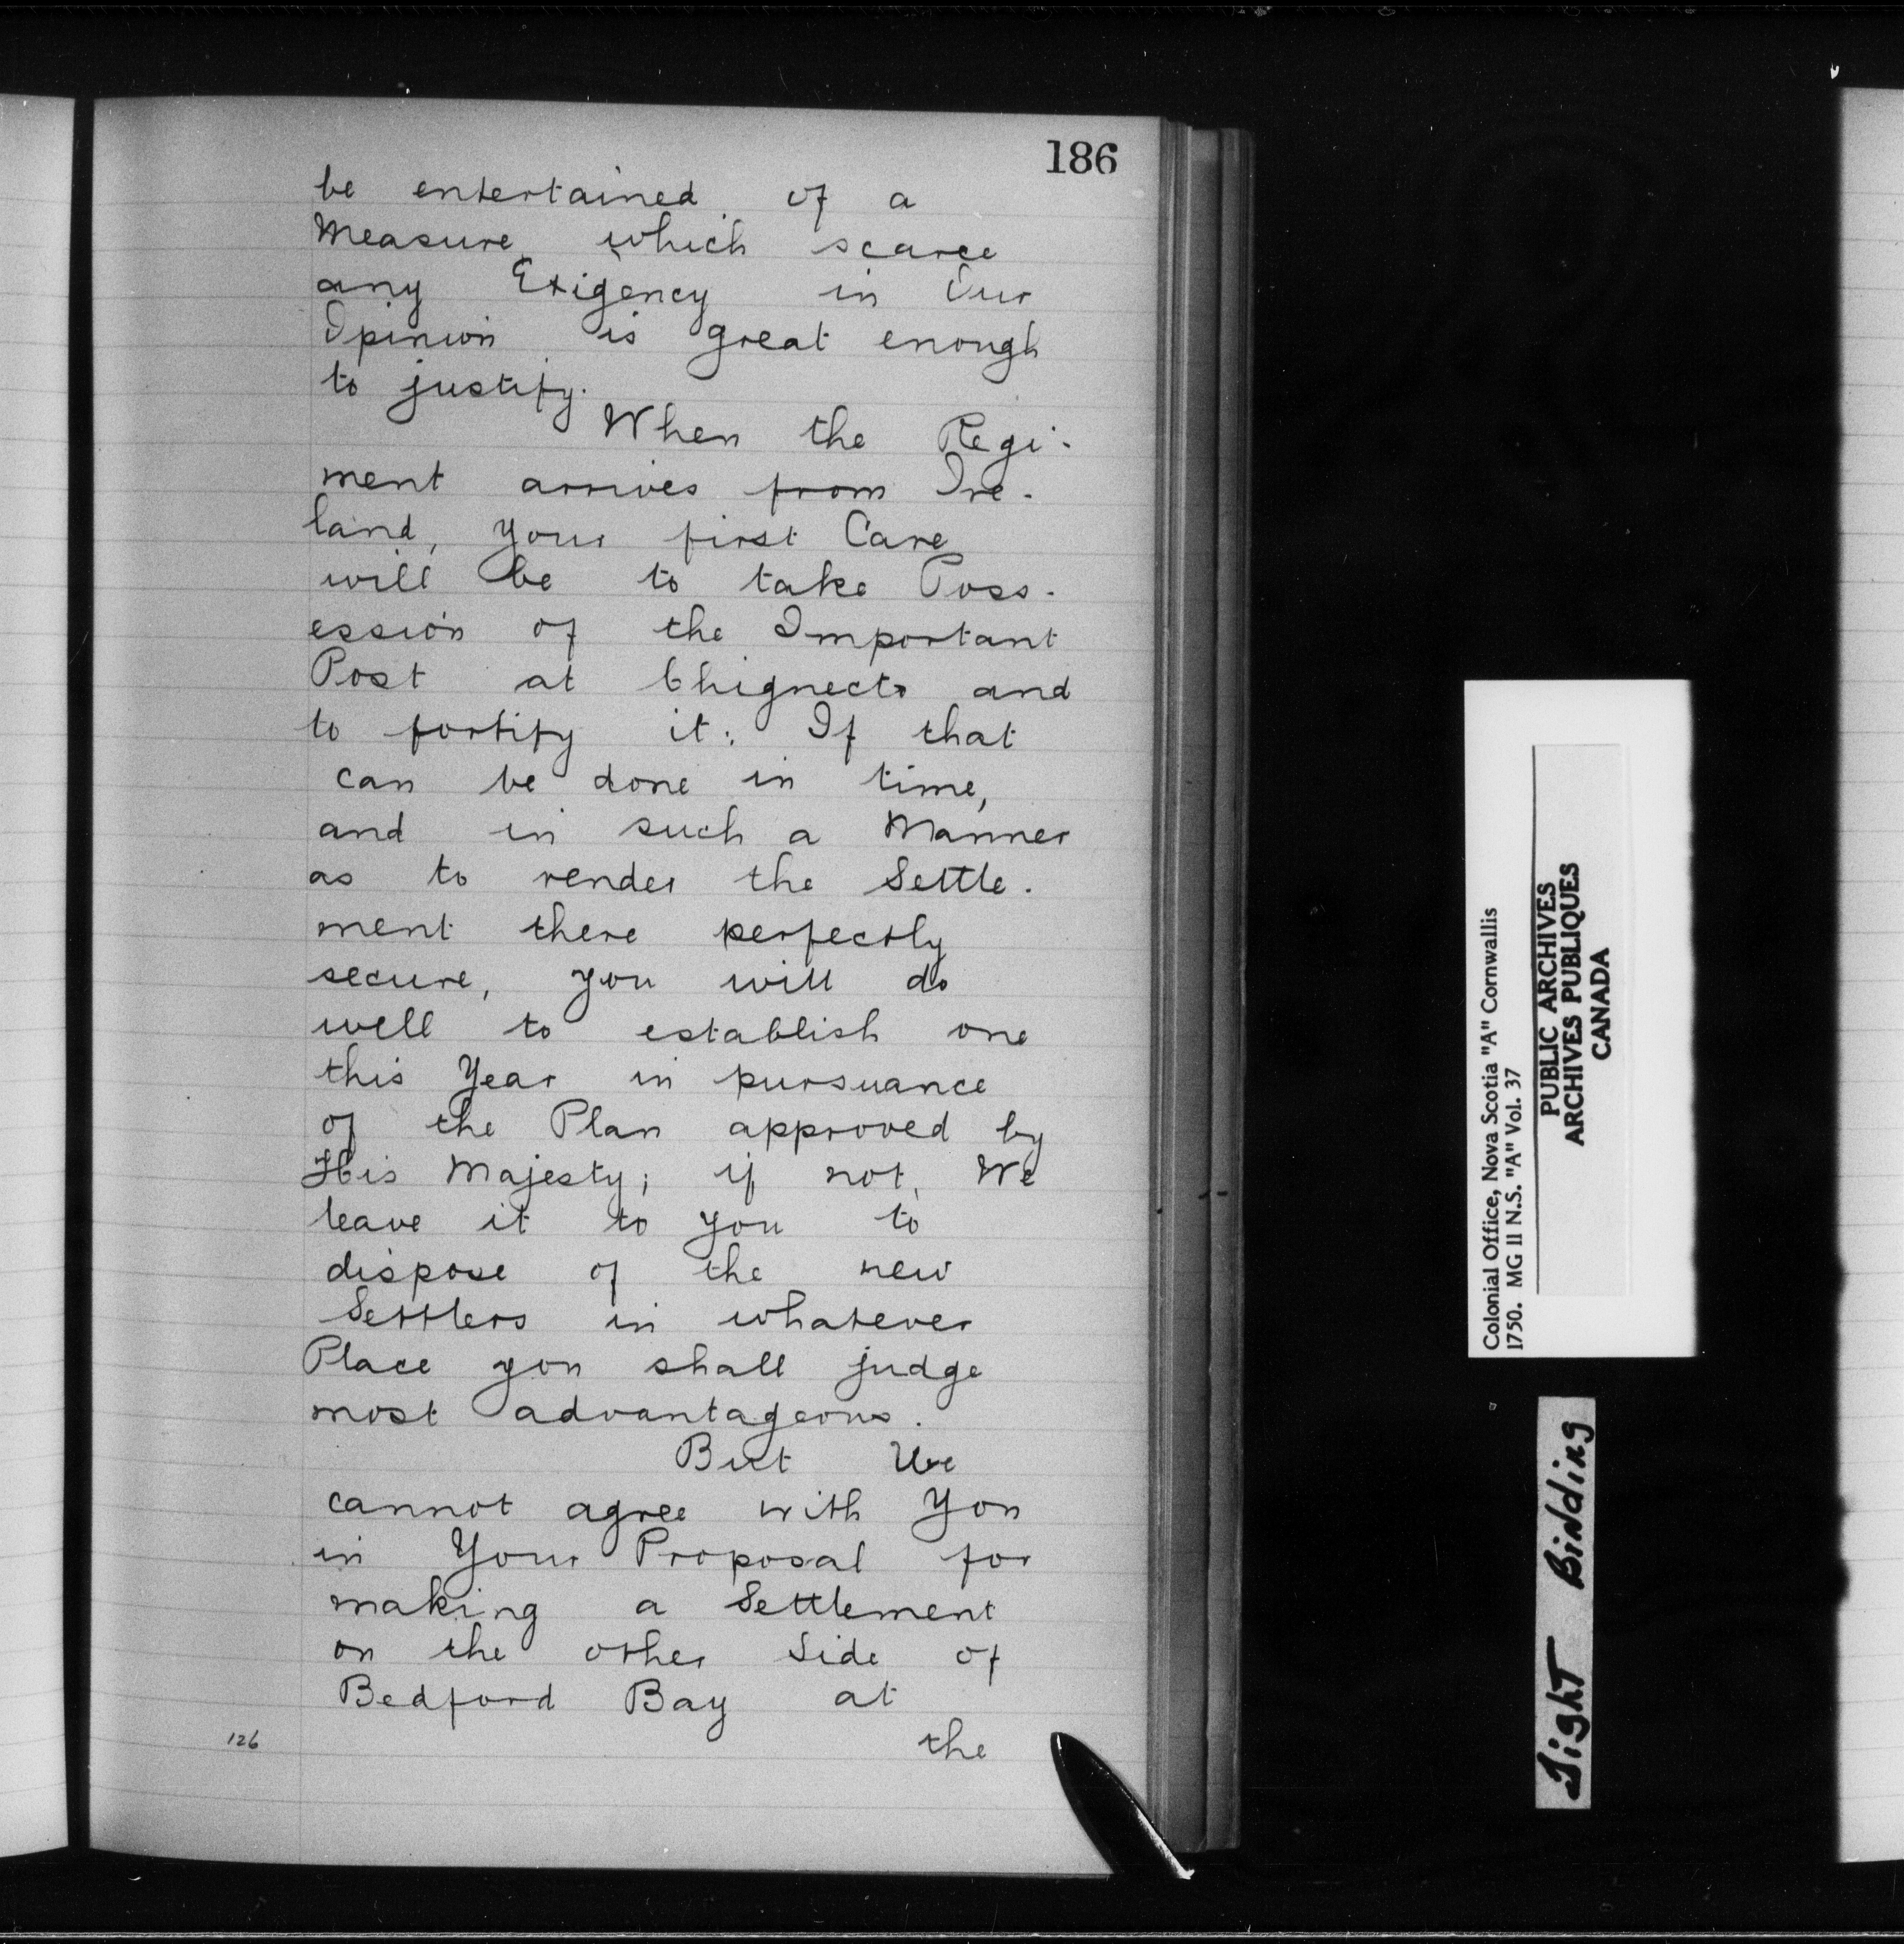 186
be entertained of a
Measure which scarce
any Exigency in Our
Opinion is great enough
to justify.
When the Regi-
ment arrives from Ire-
land, your first Care
will be to take Poss-
ession of the Important
Post at Chignecto and
to fortify it: If that
can be done in time,
and in such a Manner
as to render the Settle-
ment there perfectly
secure, you will do
well to establish one
this Year in pursuance
of the Plan approved by
His Majesty; if not, We
leave it to you to
dispose of the new
Settlers in whatever
Place you shall judge
most advantageous.
But We
cannot agree with You
in Your Proposal for
making a Settlement
on the other Side of
Bedford Bay at
the
126
Colonial Office, Nova Scotia "A" Cornwallis
1750. MG 11 N.S. "A" Vol. 37
PUBLIC ARCHIVES
ARCHIVES PUBLIQUES
CANADA
Tight Binding